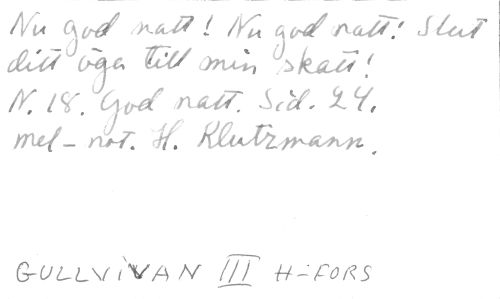 Nu god natt! Nu god natt! Slut
ditt öga till min skatt!
N. 18. God natt. Sid. 24.
mel-not. H. Klutzmann.
GULLVIVAN III H-FORS